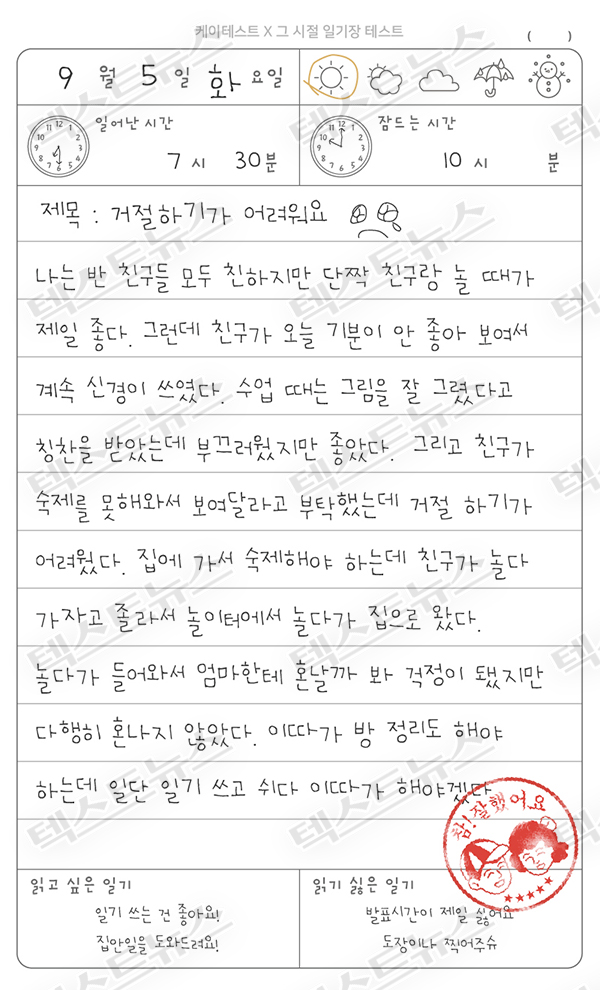 케이테스트 X 그 시절 일기장 테스트
( )
9 월 5 일 화 요일
일어난 시간
7 시 30 분
잠드는 시간
10 시 분
제목 : 거절하기가 어려워요
나는 반 친구들 모두 친하지만 단짝 친구랑 놀 때가
제일 좋다. 그런데 친구가 오늘 기분이 안 좋아 보여서
계속 신경이 쓰였다. 수업 때는 그림을 잘 그렸다고
칭찬을 받았는데 부끄러웠지만 좋았다. 그리고 친구가
숙제를 못해와서 보여달라고 부탁했는데 거절 하기가
어려웠다. 집에 가서 숙제해야 하는데 친구가 놀다
가자고 졸라서 놀이터에서 놀다가 집으로 왔다.
놀다가 들어와서 엄마한테 혼날까 봐 걱정이 됐지만
다행히 혼나지 않았다. 이따가 방 정리도 해야
하는데 일단 일기 쓰고 쉬다 이따가 해야겠다
참! 잘했어요
읽고 싶은 일기
일기 쓰는 건 좋아요!
집안일을 도와드려요!
읽기 싫은 일기
발표시간이 제일 싫어요
도장이나 찍어주슈
텍스트뉴스